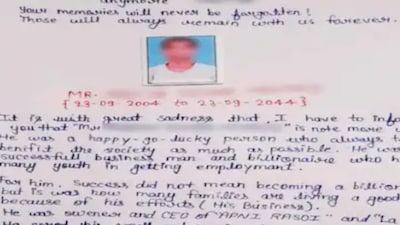 anymore
Your memories will never be forgotten!
Those will always remain with us forever.
MR.
[23-09-2004 to 23-09-2044]
It is with great sadness that, I have to info
you that "Mr is note more w
He was a happy-go-lucky person who always t
benifit the society as much as possible. He wa
successfull business man and billionaire who h
many youth in getting employment.
For him, Success did not mean becoming a billion
but is was how many families are living a good
because of his efforts (His Business).
He was owener and CEO of "APNI RASOI" and "La